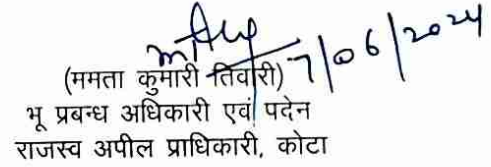 7/06/2024
(ममता कुमारी तिवारी)
भू प्रबन्ध अधिकारी एवं पदेन
राजस्व अपील प्राधिकारी, कोटा